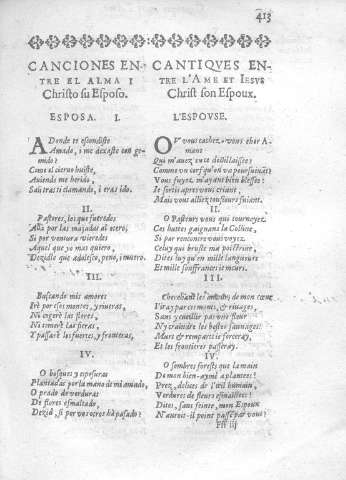 413
CANCIONES EN-
TRE EL ALMA I
Christo su Esposo.
ESPOSA. I.
A Donde te escondiste
Amado, i me dexaste con ge-
mido?
Como el ciervo huiste,
Aviendo me herido,
Sali tras ti clamando, i eras ido.
II.
Pastores, los que fueredes
Allà por las majadas al otero,
Si por ventura vieredes
Aquel que yo mas quiero,
Dezidle que adolesco, peno, i muero.
III.
Buscando mis amores
Irè por essos montes, y riveras,
Ni cogerè las flores,
Ni temerè las fieras,
Y passarè los fuertes, y fronteras.
IV.
O bosques y espesuras
Plantadas por la mano de mi amado,
O prado de verduras
De flores esmaltado,
Dezid, si por vosotros ha pasado?
CANTIQVES EN-
TRE L'AME ET IESVS
Christ son Espoux.
L'ESPOVSE.
OV vous cachez-vous cher A-
mant
Qui m'avez en ce
Comme un cerf qu'on va poursuivant
Vous fuyez m'ayant bien blessée:
Ie sortis apres vous criant,
Mais vous alliez tousiours fuiant.
II.
O Pasteurs vous qui tournoyez
Ces huttes gaignans la Colline,
Si par rencontre vous voyez
Celuy qui brusle ma poictrine,
Dites luy qu'en mille langueurs
Et mille souffrances ie meurs.
III.
Cherchant les amours de mon cœur
I'iray par ces monts, & rivages,
Sans y cueillir pas une fleur
Ny craindre les bestes sauvages:
Murs & remparts ie forceray,
Et les frontieres passeray.
IV.
O sombres forests que la main
De mon bien-aymé a plantees!
Prez, delices de l'œil humain,
Verdures de fleurs esmaillees!
Dites, sans feinte, mon Espoux
N'auroit-il point passé par vous?
Fff iij